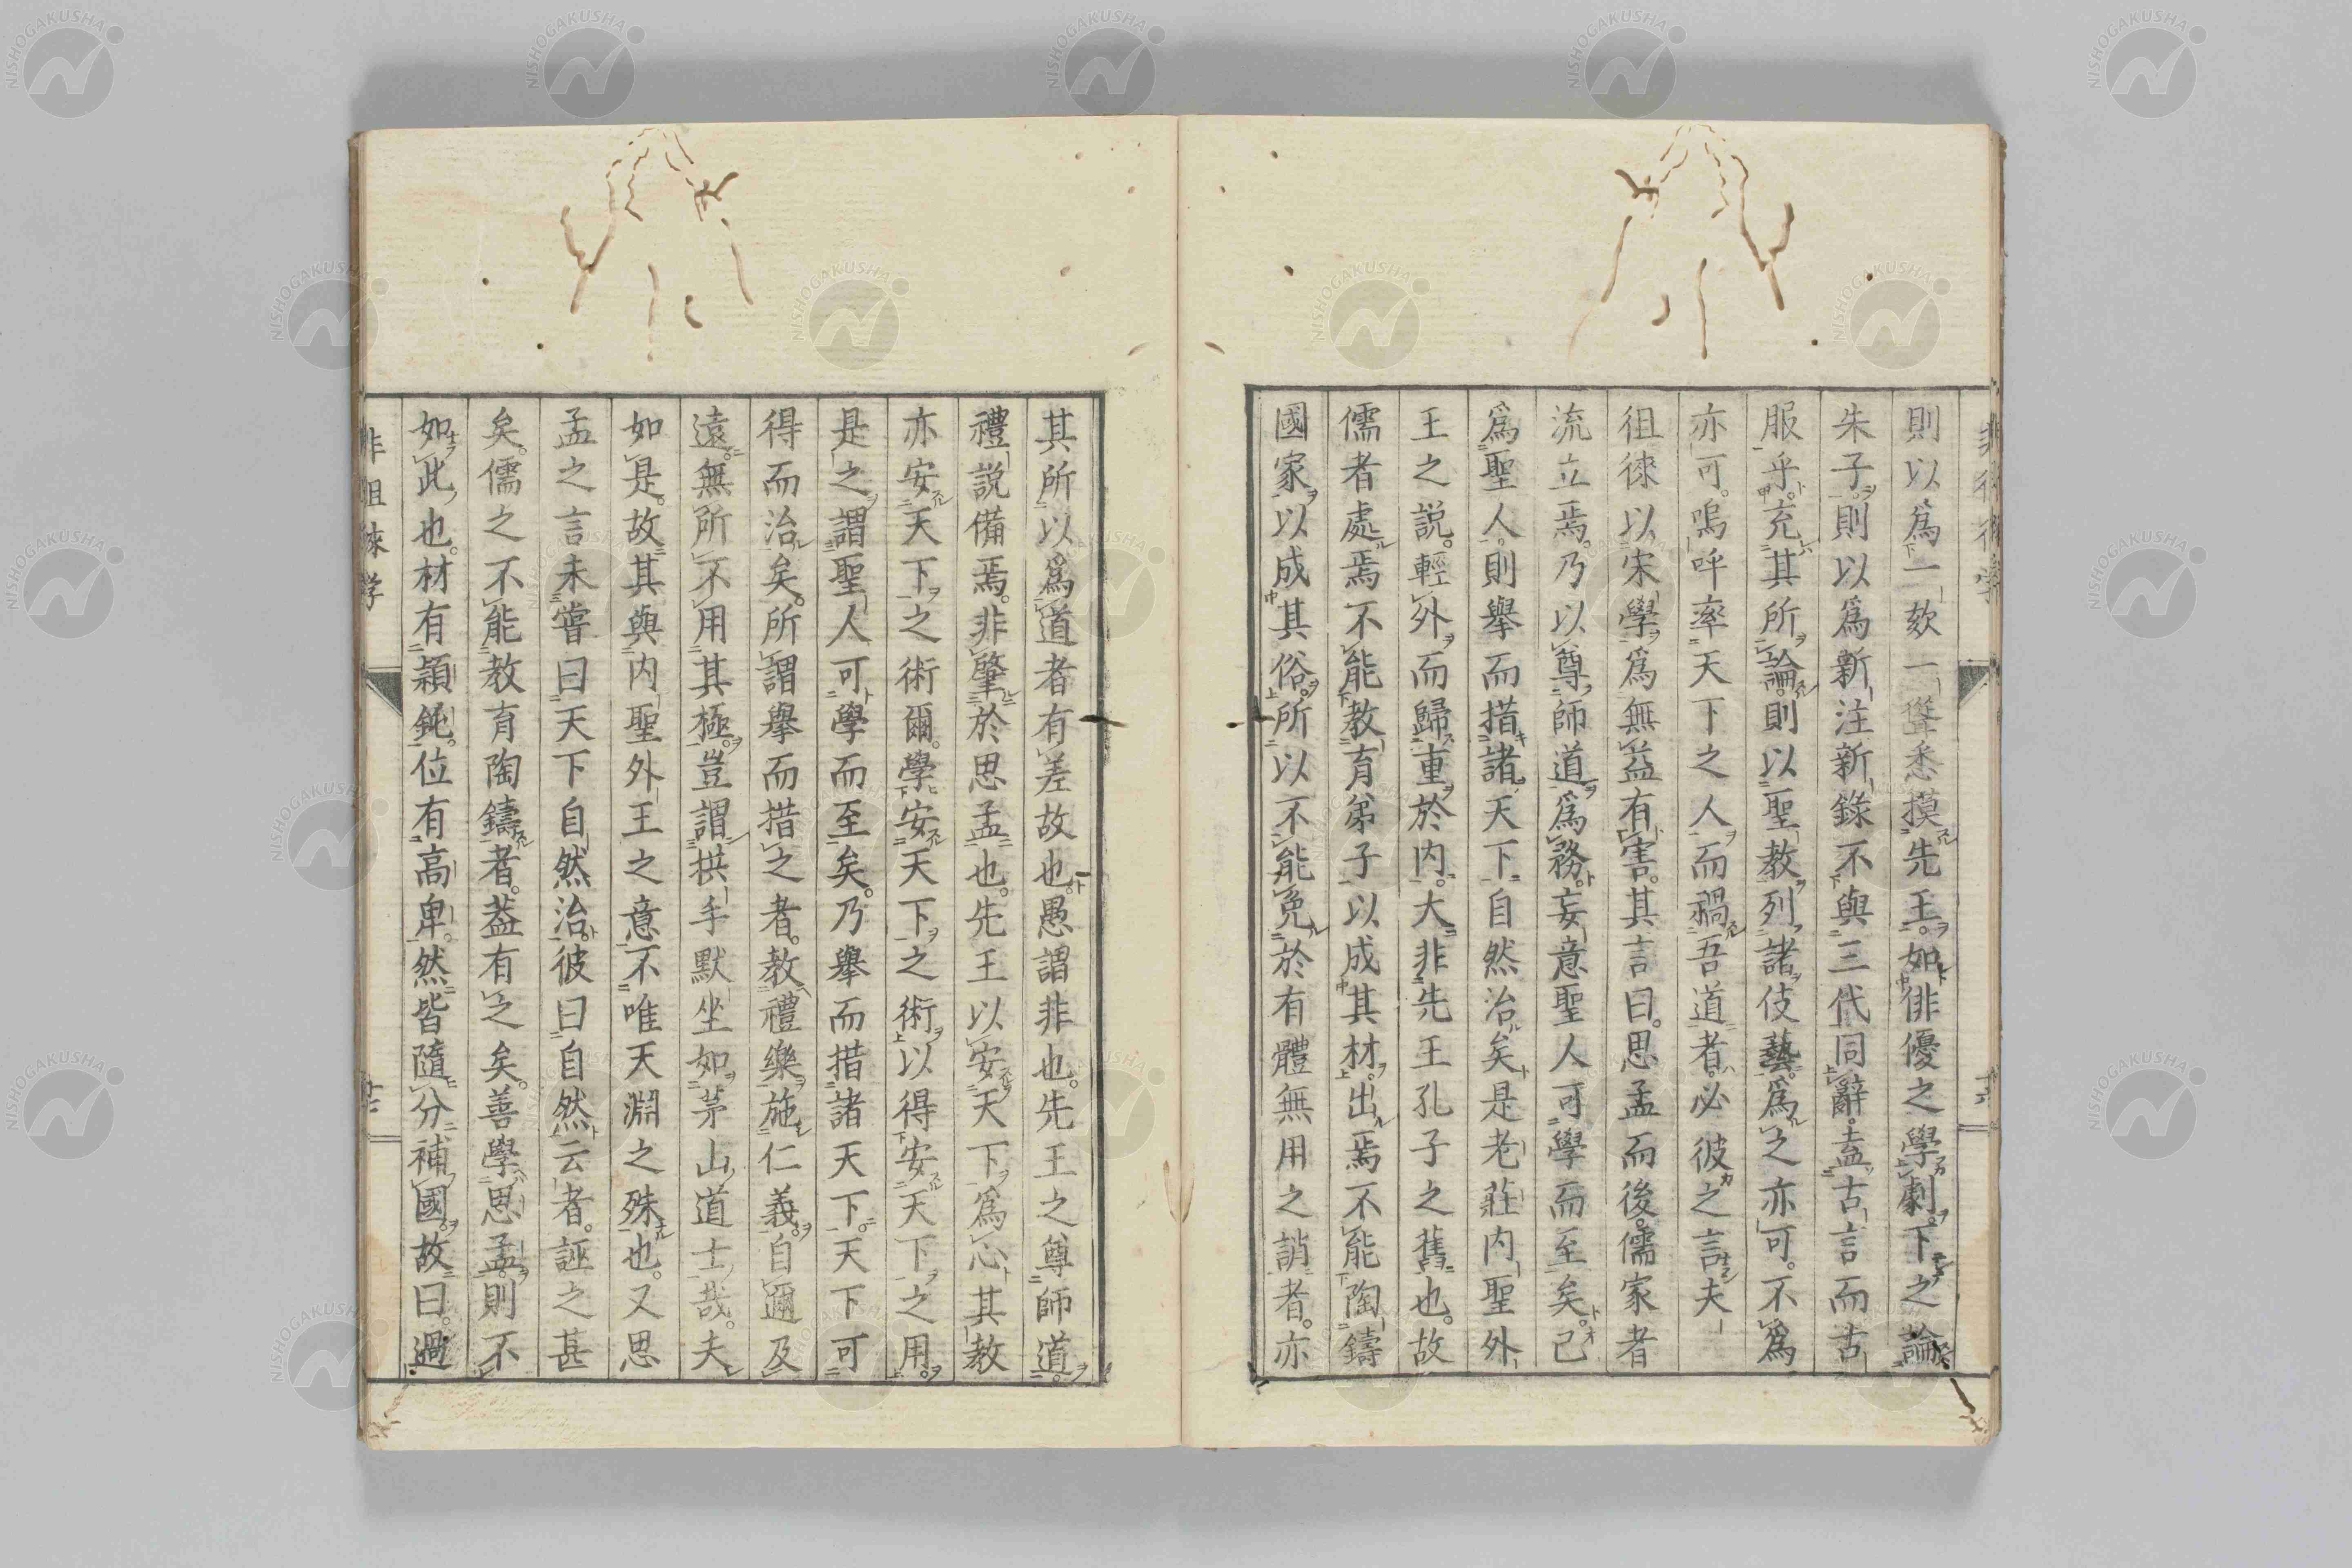 則以爲一欬一聳悉摸先王。如俳優之學劇。下之論
朱子。則以爲新注新錄不與三代同辭。盍古言而古
服乎。充其所論。則以聖教列諸伎藝。爲之亦可。不爲
亦可。嗚呼率天下之人而禍吾道者。必彼之言夫
徂徠以宋學爲無益有害。其言曰。思孟而後。儒家者
流立焉。乃以尊師道爲務。妄意聖人可學而至矣。已
爲聖人。則舉而措諸天下。自然治矣。是老莊内聖外
王之説。輕外而歸重於内。大非先王孔子之舊也。故
儒者處焉不能教育弟子以成其材。出焉不能陶鑄
國家以成其俗。所以不能免於有體無用之誚者。亦
其所以爲道者有差故也。愚謂非也。先王之尊師道。
禮説備焉。非肇於思孟也。先王以安天下爲心。其教
亦安天下之術爾。學安天下之術以得安天下之用。
是之謂聖人可學而至矣。乃舉而措諸天下。天下可
得而治矣。所謂舉而措之者。教禮樂施仁義。自邇及
遠。無所不用其極。豈謂拱手默坐如茅山道士哉。夫
如是。故其與内聖外王之意不唯天淵之殊也。又思
孟之言未嘗曰天下自然治。彼曰自然云者。誣之甚
矣。儒之不能教育陶鑄者。葢有之矣。善學思孟。則不
如此也。材有穎鈍。位有高卑。然皆隨分補國。故曰。過
非徂徠学